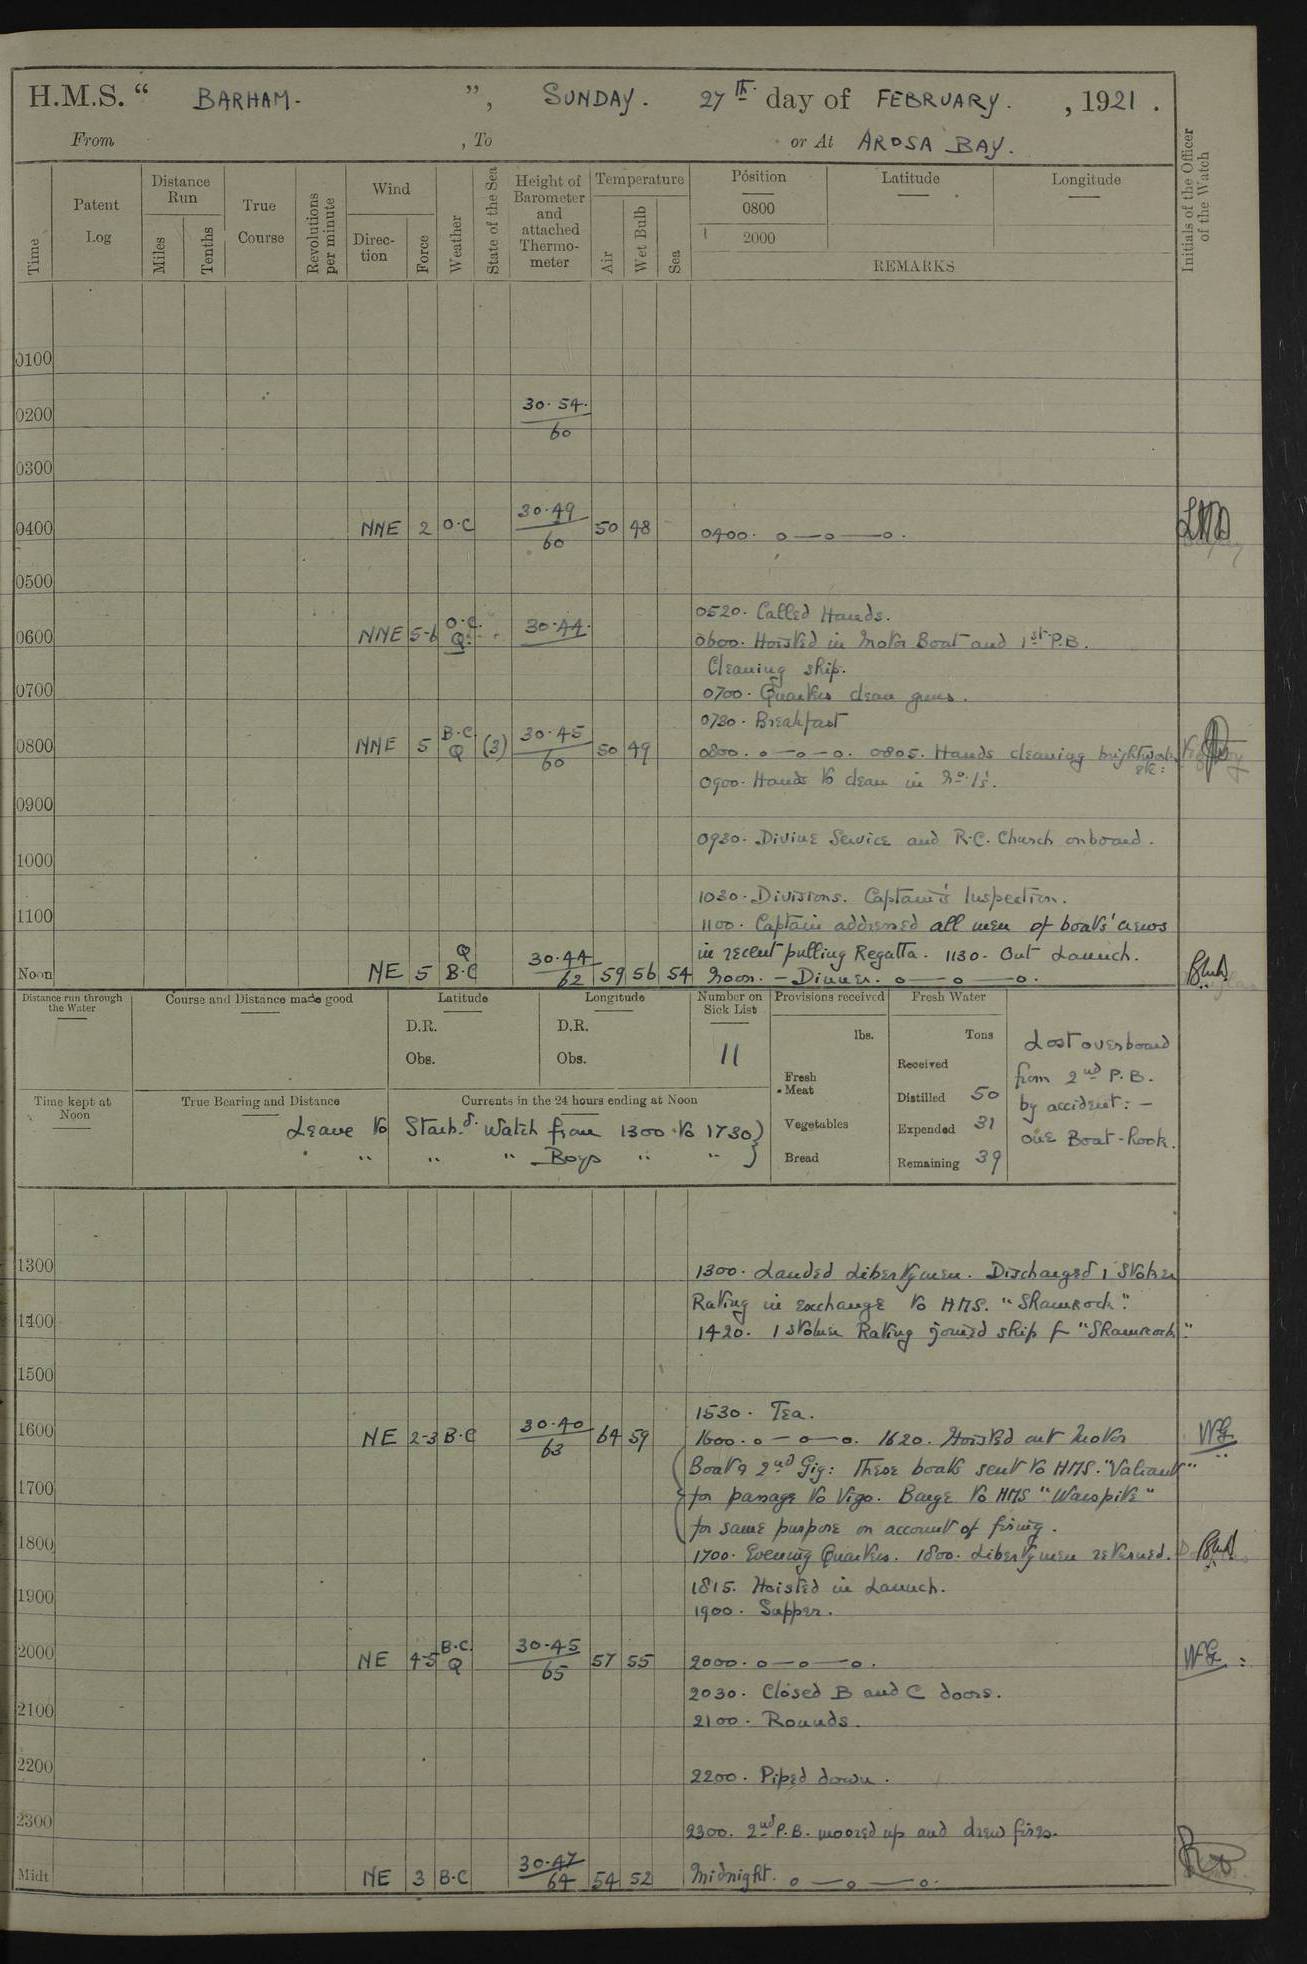 H.M.S. “ BARHAM. ”, SUNDAY. 27th day of FEBRUARY. , 1921.
From , To or At AROSA BAY.
Time
Patent Log
Distance Run
Miles
Tenths
True Course
Revolutions per minute
Wind
Direction
Force
Weather
State of the Sea
Height of Barometer and attached Thermometer
Temperature
Air
Wet Bulb
Sea
Position
0800
2000
Latitude
Longitude
REMARKS
Initials of the Officer of the Watch
0100
0200 30.54. 60
0300
0400 NNE 2 O.C 30.49 60 50 48 0400. o—o—o.
0500
0520. Called Hands.
0600 NNE 5-6 O.C. Q. 30.44. 0600. Hoisted in Motor Boat and 1st P.B.
Cleaning ship.
0700 0700. Quarters clean guns.
0730. Breakfast
0800 NNE 5 B.C. Q (3) 30.45 60 50 49 0800. o—o—o. 0805. Hands cleaning brightwork etc:
0900. Hands to clean in No. 1s'.
0900
0930. Divine Service and R.C. Church onboard.
1000
1030. Divisions. Captain's Inspection.
1100 1100. Captain addressed all men of boats' crews
in recent pulling Regatta. 1130. Out Launch.
Noon NE 5 Q B.C 30.44 62 59 56 54 Noon. — Dinner. o—o—o.
Distance run through the Water
Course and Distance made good
Latitude
D.R.
Obs.
Longitude
D.R.
Obs.
Number on Sick List
11
Provisions received
lbs.
Fresh Meat
Vegetables
Bread
Fresh Water
Tons
Received
Distilled 50
Expended 31
Remaining 39
Lost overboard
from 2nd P.B.
by accident: —
one Boat-hook.
Time kept at Noon
True Bearing and Distance
Currents in the 24 hours ending at Noon
Leave to Starbd. Watch from 1300 to 1730)
" " " " Boys " " )
1300 1300. Landed Libertymen. Discharged 1 Stoker
Rating in exchange to HMS. "Shamrock".
1400
1420. 1 Stoker Rating joined ship f "Shamrock".
1500
1530. Tea.
1600 NE 2-3 B.C 30.40 63 64 59 1600. o—o—o. 1620. Hoisted out Motor
Boat & 2nd Gig: These boats sent to HMS. "Valiant"
1700 for passage to Vigo. Barge to HMS "Warspite"
for same purpose on account of firing.
1800 1700. Evening Quarters. 1800. Libertymen returned.
1815. Hoisted in Launch.
1900 1900. Supper.
2000 NE 4-5 B.C. Q 30.45 65 57 55 2000. o—o—o.
2030. Closed B and C doors.
2100 2100. Rounds.
2200 2200. Piped down.
2300 2300. 2nd P.B. moored up and drew fires.
Midt NE 3 B.C 30.47 64 54 52 Midnight. o—o—o.